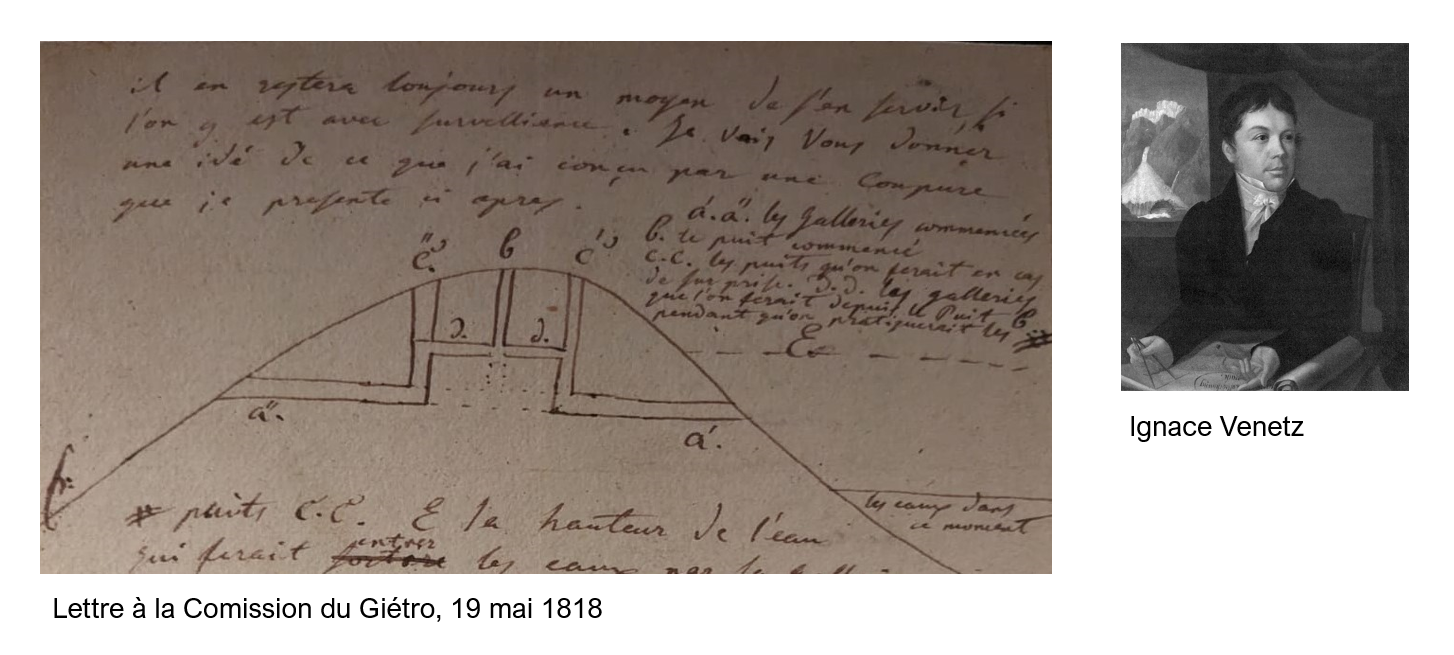 il en restera toujours un moyen de s'en servir, si
l'on y est avec survellience. Je vais vous donner
une idé de ce que j'ai conçu par une Coupure
que je presente ci apres.
a'.a". les Galleries commencées
b. le puit commencé
c.c. les puits qu'on ferait en cas
de surprise. d.d. les galleries
que l'on ferait depuis le Puit b.
pendant qu'on pratiquerait les #
c". b c'.
d. d.
E
a". a'.
les eaux dans
ce moment
# puits c.c. E la hauteur de l'eau
entrer
qui ferait les eaux par la
Lettre à la Comission du Giétro, 19 mai 1818
Ignace Venetz